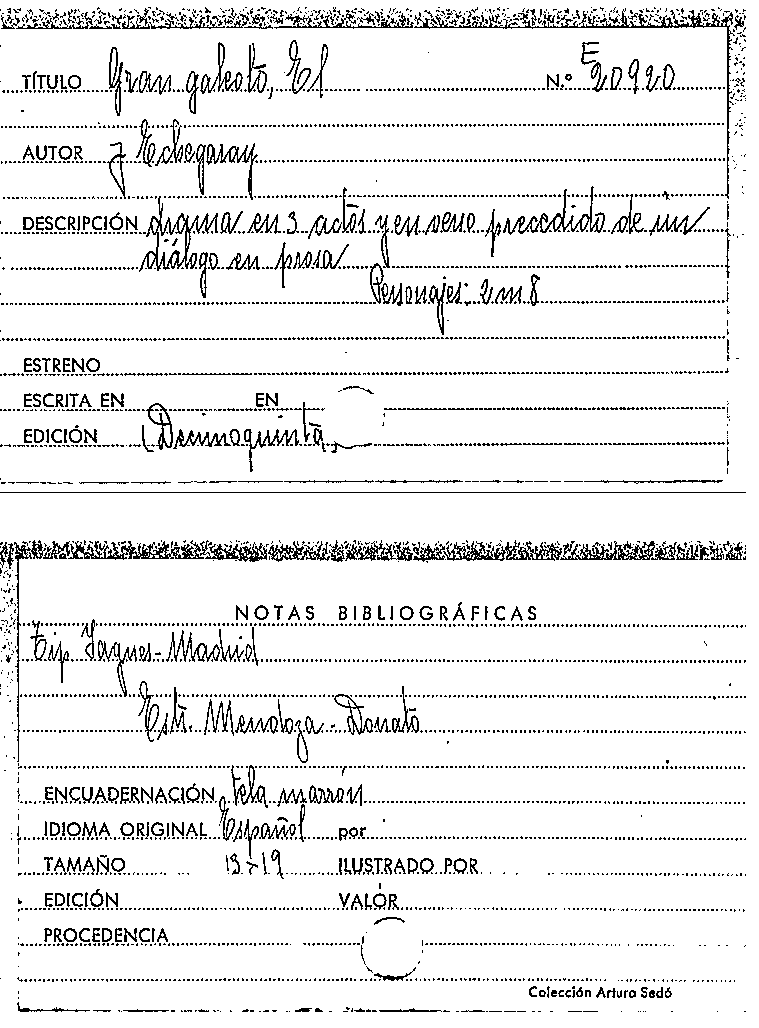 TÍTULO Gran galeoto, El N.º E 20920
AUTOR J Echegaray
DESCRIPCIÓN drama en 3 actos y en verso precedido de un
diálogo en prosa
Personajes: 2 m 8
ESTRENO
ESCRITA EN EN
EDICIÓN (Decimoquinta)
NOTAS BIBLIOGRÁFICAS
Tip Yagues - Madrid
Est. Mendoza - Donato
ENCUADERNACIÓN tela marrón
IDIOMA ORIGINAL Español por
TAMAÑO 13 > 19 ILUSTRADO POR
EDICIÓN VALOR
PROCEDENCIA
Colección Arturo Sedó